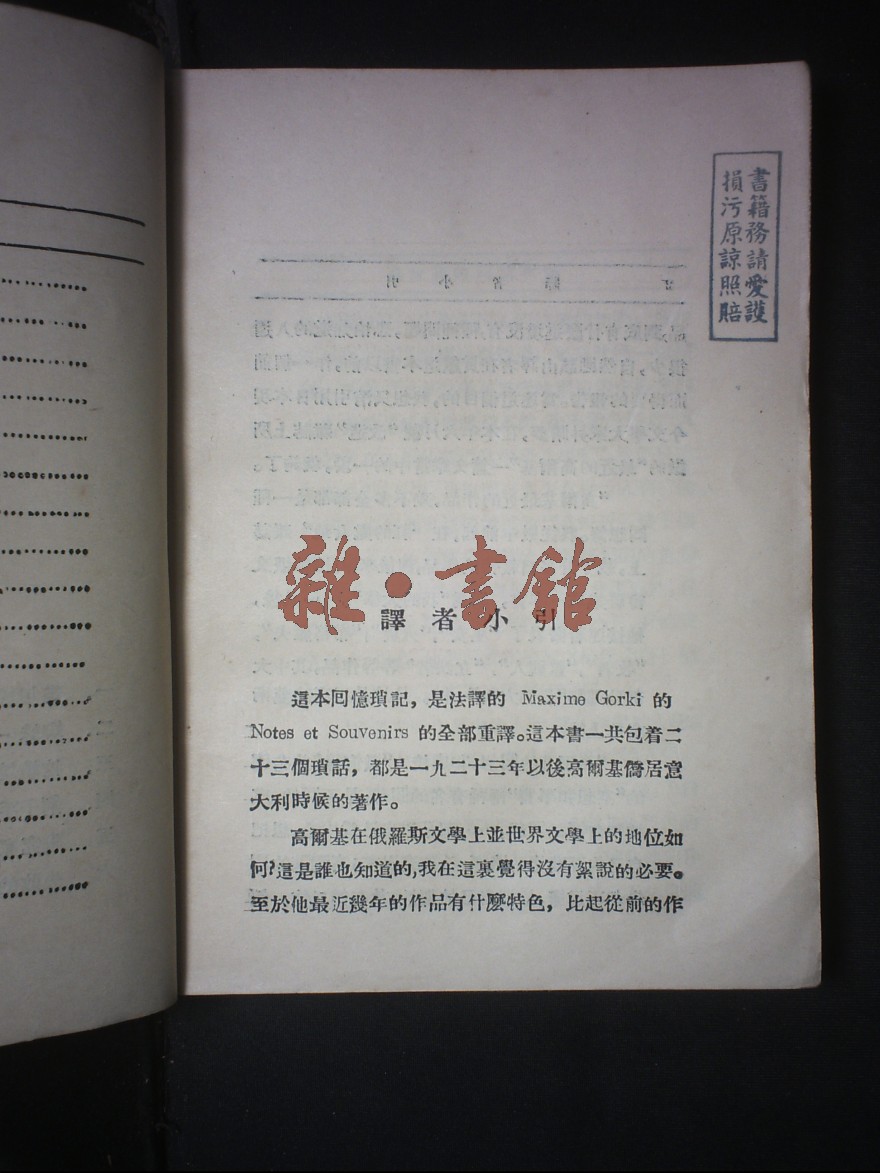 書籍務請愛護
損污原諒照賠
雜·書館
譯者小引
這本回憶瑣記，是法譯的 Maxime Gorki 的
Notes et Souvenirs 的全部重譯。這本書一共包着二
十三個瑣話，都是一九二十三年以後高爾基僑居意
大利時候的著作。
高爾基在俄羅斯文學上並世界文學上的地位如
何？這是誰也知道的，我在這裏覺得沒有絮說的必要。
至於他最近幾年的作品有什麽特色，比起從前的作